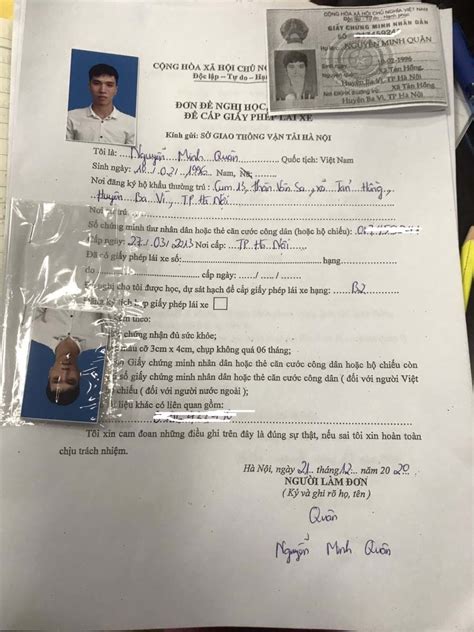 CỘNG HÒA XÃ HỘI CHỦ NGHĨA VIỆT NAM
Độc lập - Tự do - Hạnh phúc
GIẤY CHỨNG MINH NHÂN DÂN
SỐ
Họ tên NGUYỄN MINH QUÂN
Sinh ngày 18-02-1996
Nguyên quán Xã Tản Hồng,
Huyện Ba Vì, TP Hà Nội
Nơi ĐKHK thường trú Xã Tản Hồng,
Huyện Ba Vì, TP Hà Nội
CỘNG HÒA XÃ HỘI CHỦ
Độc lập – Tự do – Hạ
ĐƠN ĐỀ NGHỊ HỌC,
ĐỂ CẤP GIẤY PHÉP LÁI XE
Kính gửi: SỞ GIAO THÔNG VẬN TẢI HÀ NỘI
Tôi là: Nguyễn Minh Quân Quốc tịch: Việt Nam
Sinh ngày: 18/02/1996 Nam, Nữ:
Nơi đăng ký hộ khẩu thường trú: Cụm 13, thôn Vân Sa, xã Tản Hồng,
Huyện Ba Vì, TP. Hà Nội
Nơi cư trú:
Số chứng minh thư nhân dân hoặc thẻ căn cước công dân (hoặc hộ chiếu):
Cấp ngày: 27/03/2013 Nơi cấp: TP. Hà Nội
Đã có giấy phép lái xe số: hạng
do cấp ngày: / /
nghị cho tôi được học, dự sát hạch để cấp giấy phép lái xe hạng: B2
Đăng ký tích hợp giấy phép lái xe
kèm theo:
chứng nhận đủ sức khỏe;
màu cỡ 3cm x 4cm, chụp không quá 06 tháng;
Giấy chứng minh nhân dân hoặc thẻ căn cước công dân hoặc hộ chiếu còn
số giấy chứng minh nhân dân hoặc thẻ căn cước công dân ( đối với người Việt
chiếu ( đối với người nước ngoài );
liệu khác có liên quan gồm:
Tôi xin cam đoan những điều ghi trên đây là đúng sự thật, nếu sai tôi xin hoàn toàn
chịu trách nhiệm.
Hà Nội, ngày 21 tháng 12 năm 2020
NGƯỜI LÀM ĐƠN
( Ký và ghi rõ họ, tên )
Quân
Nguyễn Minh Quân